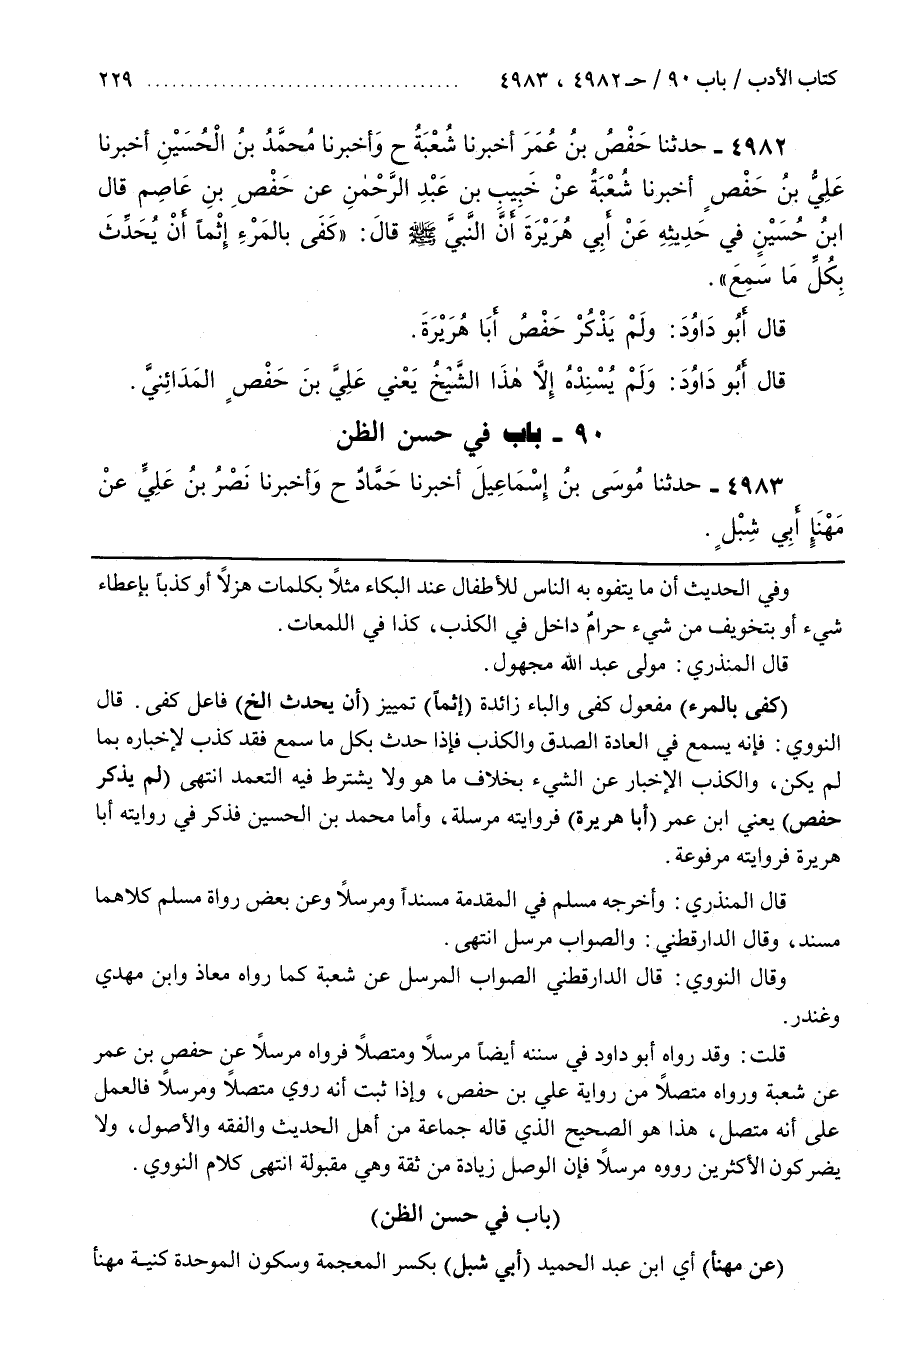 كتاب الأدب / باب ٩٠ / حـ ٤٩٨٢ ، ٤٩٨٣ ..................................... ٢٢٩
٤٩٨٢ ـ حدثنا حَفْصُ بنُ عُمَرَ أخبرنا شُعْبَةُ ح وَأخبرنا مُحمَّدُ بنُ الْحُسَيْنِ أخبرنا
عَلِيُّ بنُ حَفْصٍ أخبرنا شُعْبَةُ عنْ خَبِيبِ بن عَبْدِ الرَّحْمٰنِ عن حَفْصِ بنِ عَاصِم قال
ابنُ حُسَيْنٍ في حَدِيثِهِ عَنْ أَبي هُرَيْرَةَ أنَّ النَّبيَّ ﷺ قالَ: «كَفَى بالمَرْءِ إثْماً أَنْ يُحَدِّثَ
بِكُلِّ مَا سَمِعَ».
قال أَبُو دَاوُدَ: ولَمْ يَذْكُرْ حَفْصُ أَبَا هُرَيْرَةَ.
قال أَبُو دَاوُدَ: وَلَمْ يُسْنِدْهُ إلَّا هٰذَا الشَّيْخُ يَعْني عَلِيَّ بنَ حَفْصٍ المَدَائِنيَّ.
٩٠ ـ باب في حسن الظن
٤٩٨٣ ـ حدثنا مُوسَى بنُ إسْمَاعِيلَ أخبرنا حَمَّادٌ ح وَأخبرنا نَصْرُ بنُ عَلِيٍّ عنْ
مَهْنَإٍ أَبي شِبْلٍ.
وفي الحديث أن ما يتفوه به الناس للأطفال عند البكاء مثلاً بكلمات هزلاً أو كذباً بإعطاء
شيء أو بتخويف من شيء حرامٌ داخل في الكذب، كذا في اللمعات.
قال المنذري: مولى عبد الله مجهول.
(كفى بالمرء) مفعول كفى والباء زائدة (إثماً) تمييز (أن يحدث الخ) فاعل كفى. قال
النووي: فإنه يسمع في العادة الصدق والكذب فإذا حدث بكل ما سمع فقد كذب لإخباره بما
لم يكن، والكذب الإخبار عن الشيء بخلاف ما هو ولا يشترط فيه التعمد انتهى (لم يذكر
حفص) يعني ابن عمر (أبا هريرة) فروايته مرسلة، وأما محمد بن الحسين فذكر في روايته أبا
هريرة فروايته مرفوعة.
قال المنذري: وأخرجه مسلم في المقدمة مسنداً ومرسلاً وعن بعض رواة مسلم كلاهما
مسند، وقال الدارقطني: والصواب مرسل انتهى.
وقال النووي: قال الدارقطني الصواب المرسل عن شعبة كما رواه معاذ وابن مهدي
وغندر.
قلت: وقد رواه أبو داود في سننه أيضاً مرسلاً ومتصلاً فرواه مرسلاً عن حفص بن عمر
عن شعبة ورواه متصلاً من رواية علي بن حفص، وإذا ثبت أنه روي متصلاً ومرسلاً فالعمل
على أنه متصل، هذا هو الصحيح الذي قاله جماعة من أهل الحديث والفقه والأصول، ولا
يضر كون الأكثرين رووه مرسلاً فإن الوصل زيادة من ثقة وهي مقبولة انتهى كلام النووي.
(باب في حسن الظن)
(عن مهنأ) أي ابن عبد الحميد (أبي شبل) بكسر المعجمة وسكون الموحدة كنية مهنأ